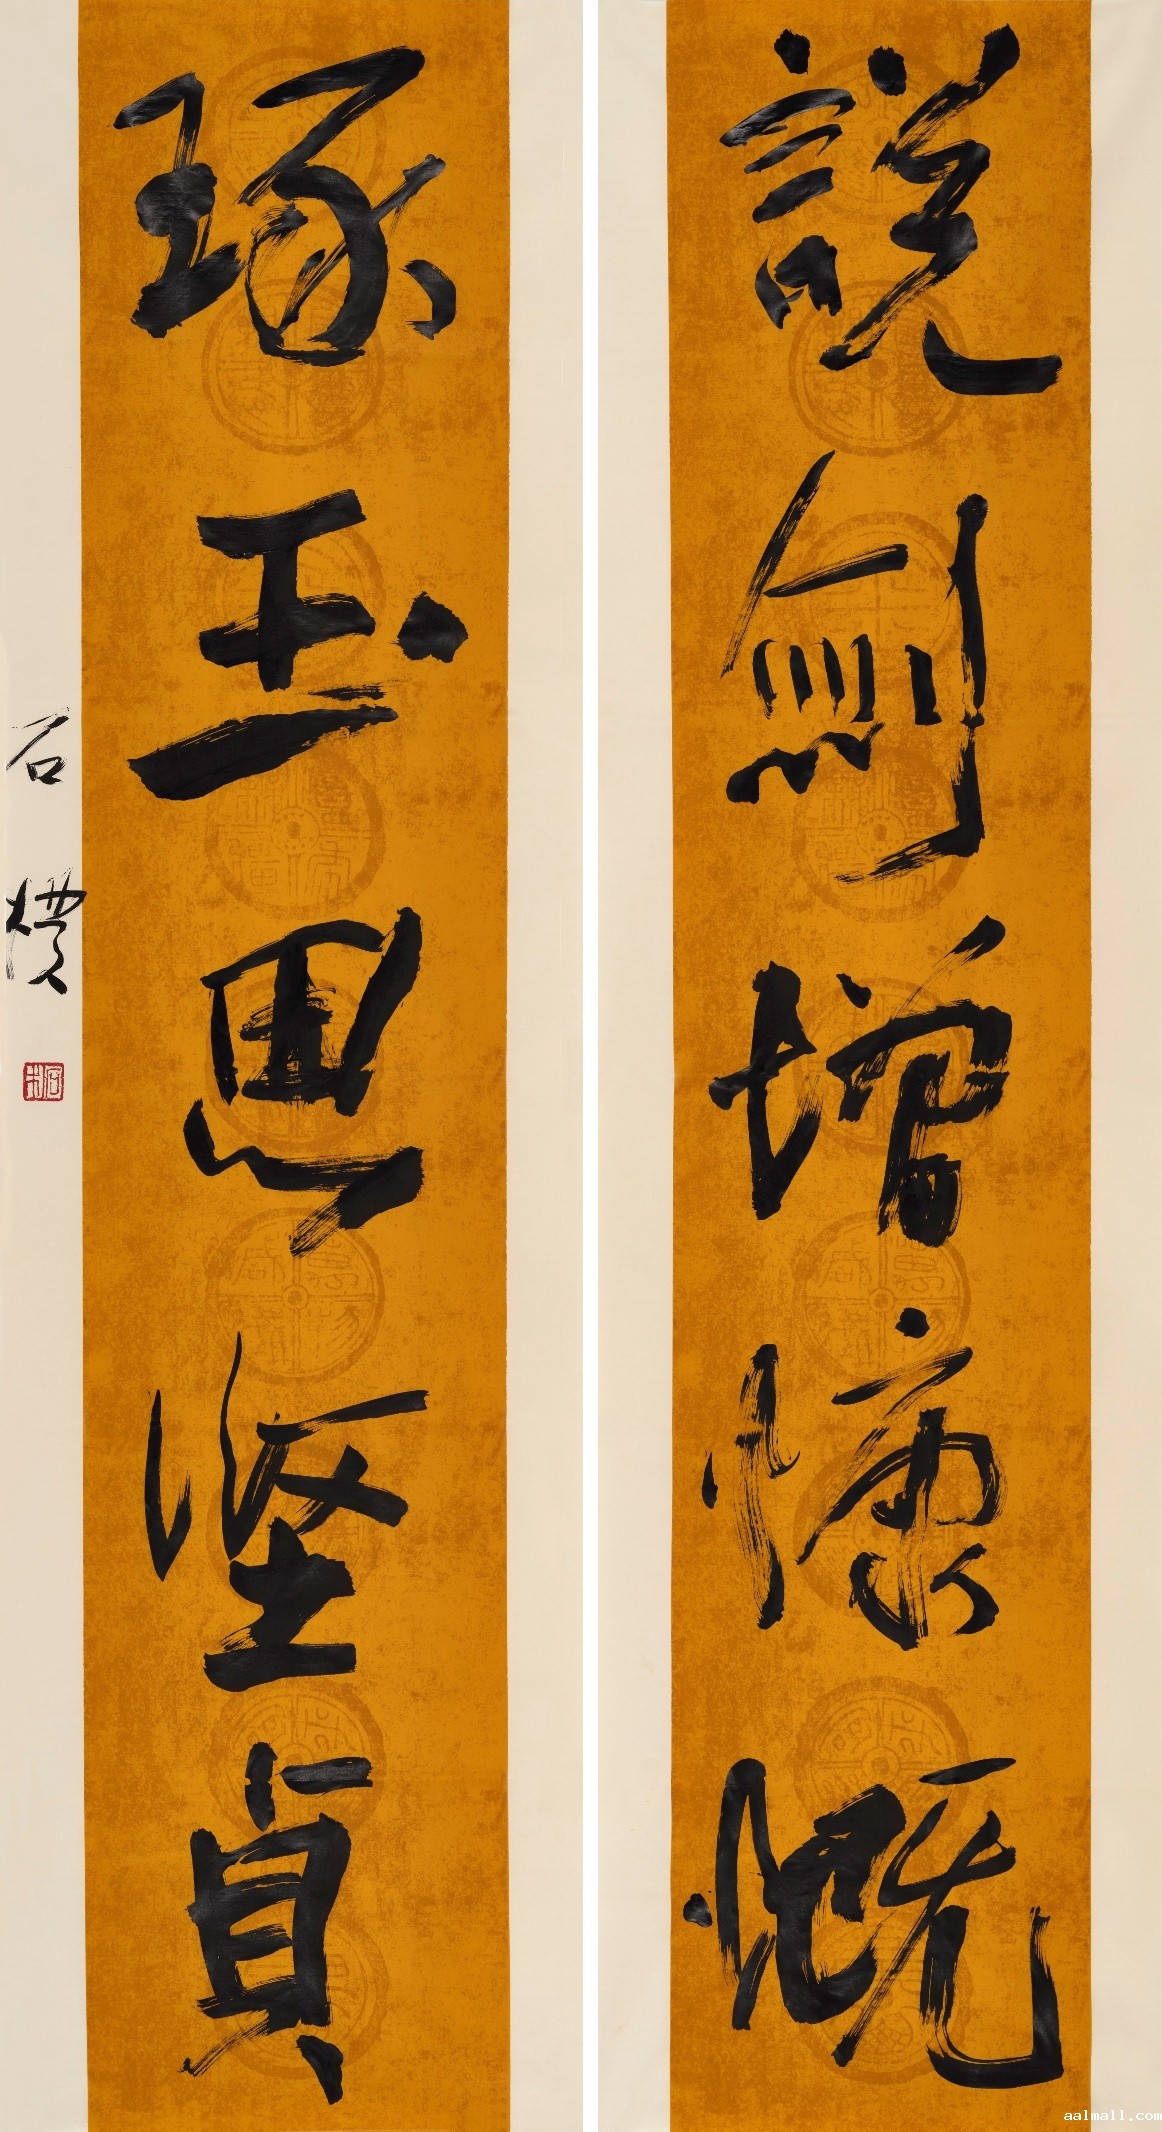 說劍增慷慨
琢玉思堅貞
石横
aalmall.com